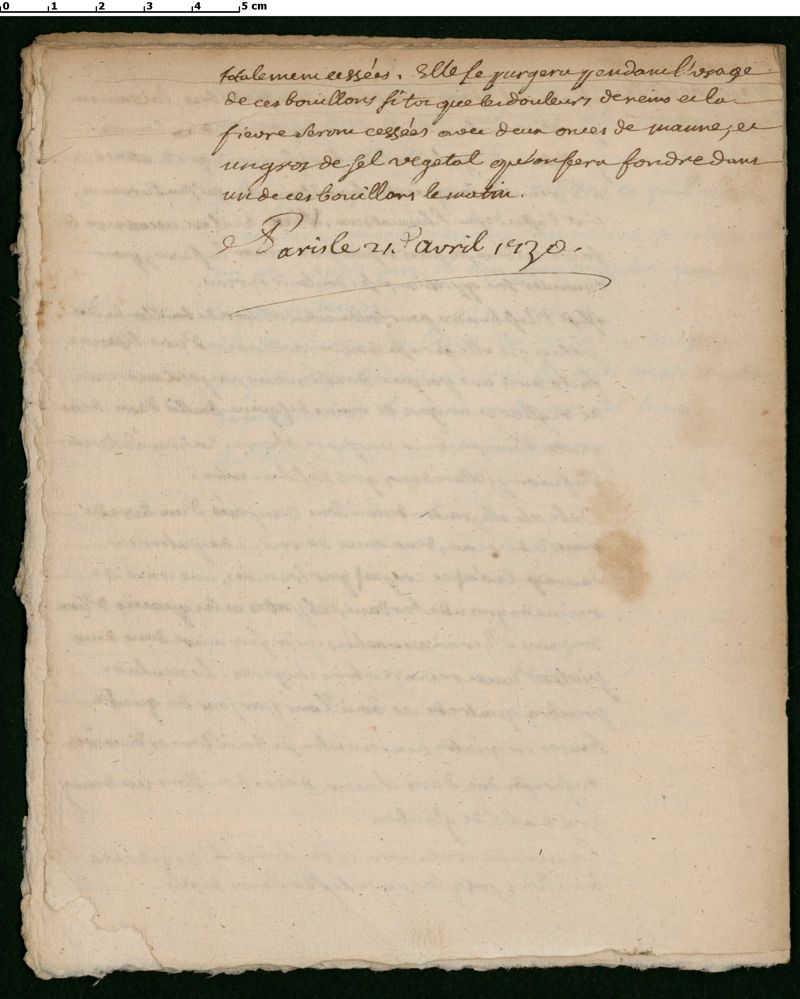 0 1 2 3 4 5 cm
totalement cessées. Elle se purgera pendant l'usage
de ces bouillons sitot que les douleurs de reins et la
fievre seront cessées avec deux onces de manne, et
un gros de sel vegetal qu'on fera fondre dans
un de ces bouillons le matin.
A Paris le 21. avril 1730.